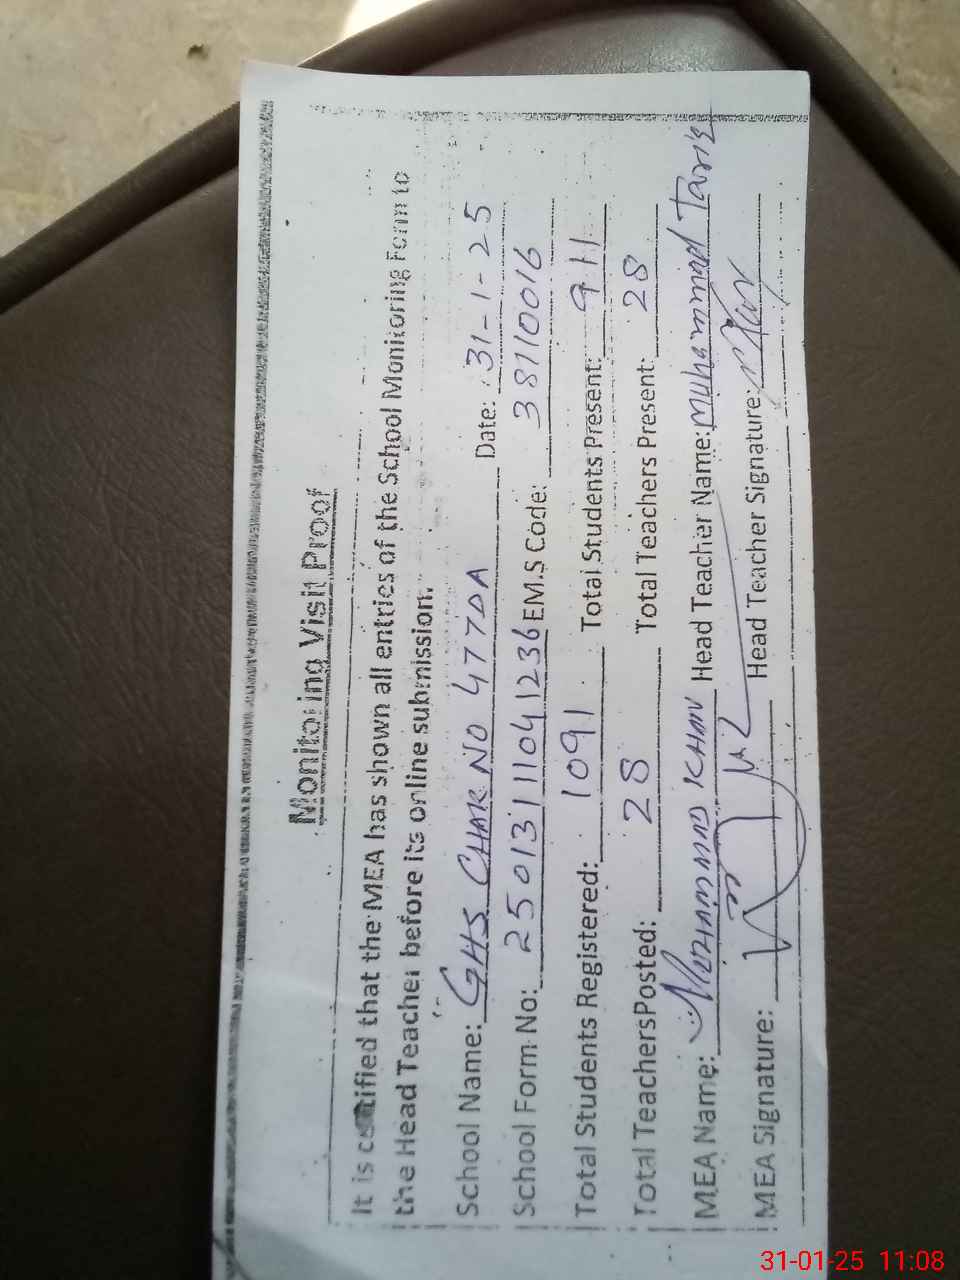 Monitoring Visit Proof
It is certified that the MEA has shown all entries of the School Monitoring Form to
the Head Teacher before its online submission.
School Name: GHS CHAK NO 477DA Date: 31-1-25
School Form No: 25013111041236 EM.S Code: 38110016
Total Students Registered: 1091 Total Students Present: 911
Total TeachersPosted: 28 Total Teachers Present: 28
MEA Name: MUHAMMAD KHAN Head Teacher Name: Muhammad Tariq
MEA Signature: Head Teacher Signature:
31-01-25 11:08